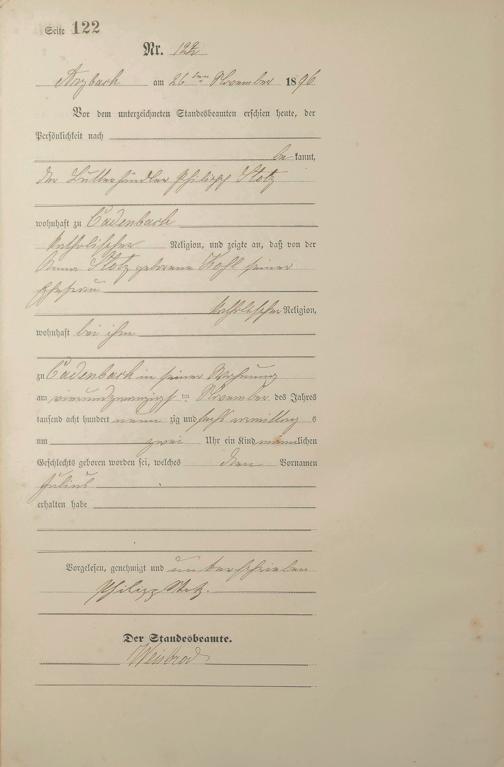 Seite 122
Nr. 122
Arzbach am 26ten November 1896
Vor dem unterzeichneten Standesbeamten erschien heute, der
Persönlichkeit nach
bekannt,
der Butterhändler Philipp Stotz
wohnhaft zu Cadenbach
katholischer Religion, und zeigte an, daß von der
Anna Stotz geborene Kohl seiner
Ehefrau
katholischer Religion,
wohnhaft bei ihm
zu Cadenbach in seiner Wohnung
am vierundzwanzigsten November des Jahres
tausend acht hundert neunzig und sechs vormittags
um zwei Uhr ein Kind männlichen
Geschlechts geboren worden sei, welches den Vornamen
Julius
erhalten habe
Vorgelesen, genehmigt und unterschrieben
Philipp Stotz.
Der Standesbeamte.
Weisbrod